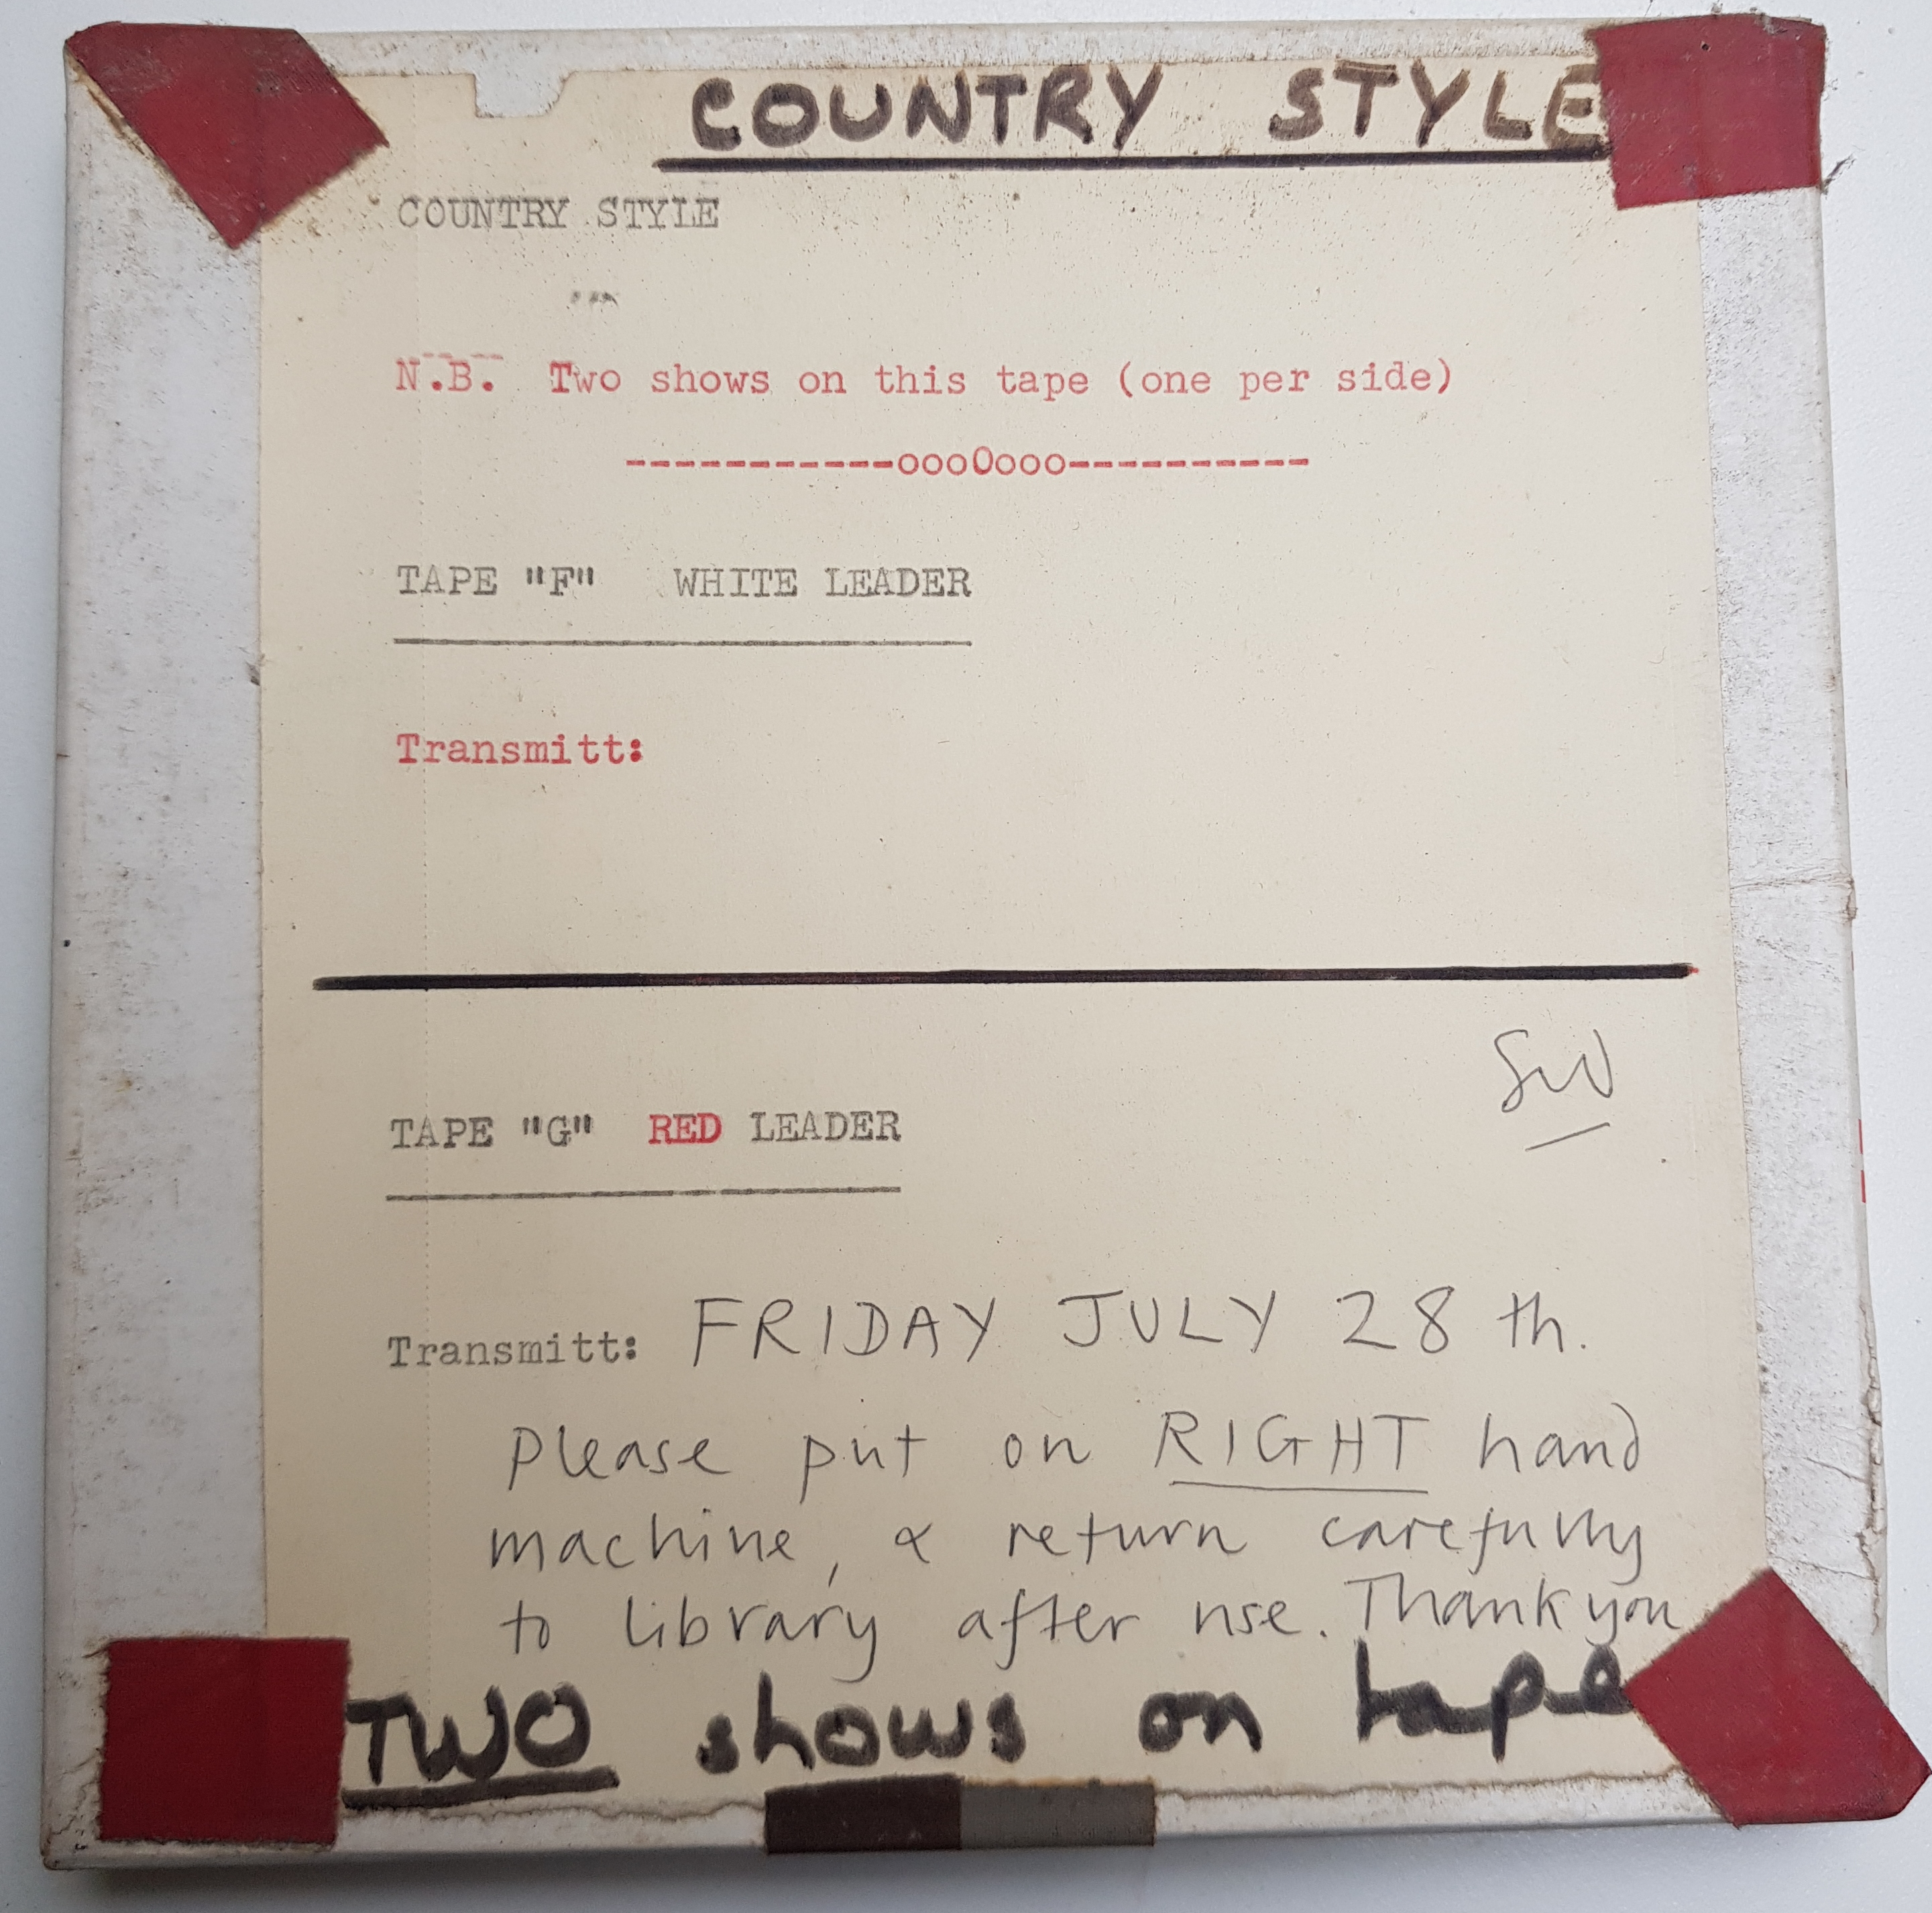 COUNTRY STYLE
COUNTRY STYLE
N.B. Two shows on this tape (one per side)
-----------oooOooo----------
TAPE "F" WHITE LEADER
Transmitt:
SW
TAPE "G" RED LEADER
Transmitt: FRIDAY JULY 28th.
Please put on RIGHT hand
machine, & return carefully
to library after use. Thank you
TWO shows on tape